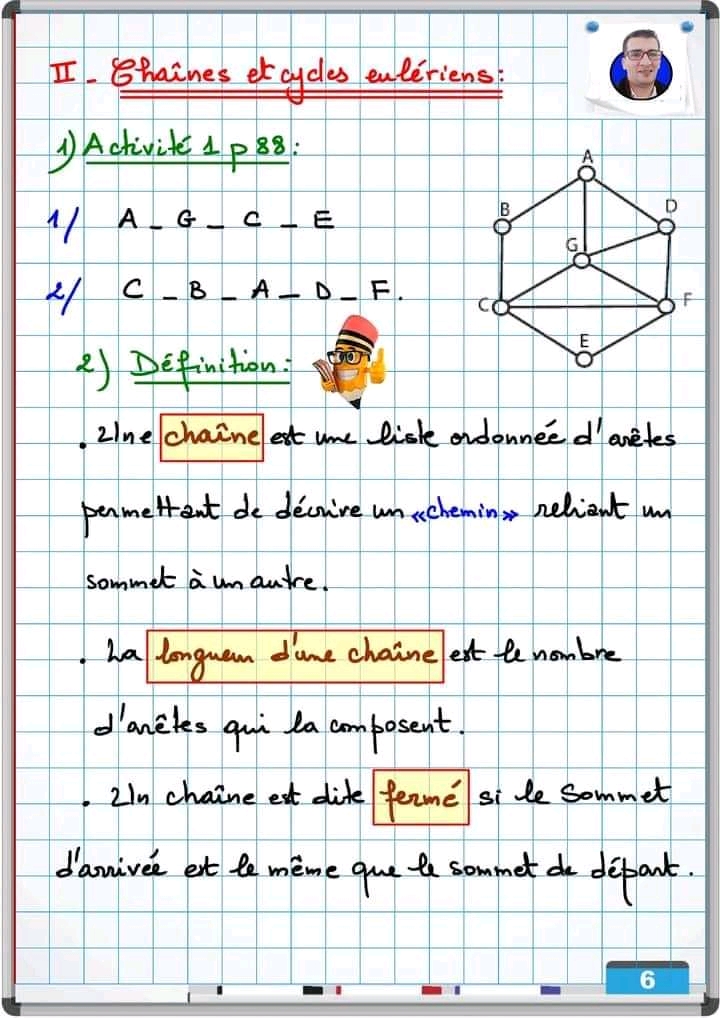 II - Chaînes et cycles eulériens:
1) Activité 1 p 88:
1/ A - G - C - E
2/ C - B - A - D - F.
A
B
D
G
C
F
E
2) Définition:
. Une chaîne est une liste ordonnée d'arêtes
permettant de décrire un «chemin» reliant un
sommet à un autre.
. La longueur d'une chaîne est le nombre
d'arêtes qui la composent.
. Un chaîne est dite fermé si le Sommet
d'arrivée est le même que le sommet de départ.
6